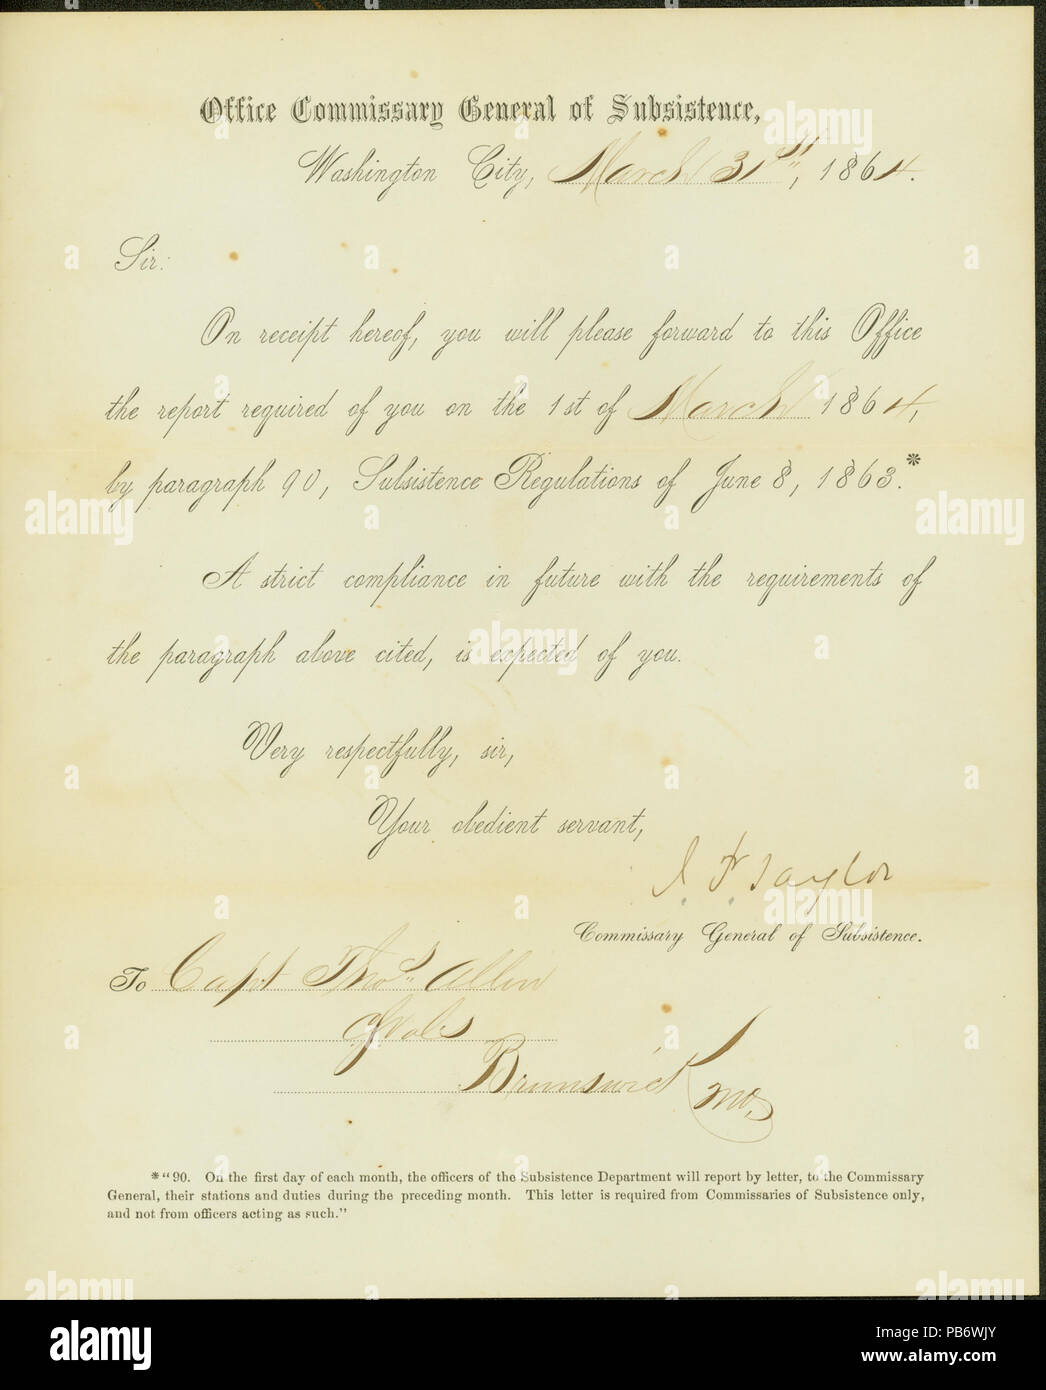 Office Commissary General of Subsistence,
Washington City, March 31st, 1864.
Sir:
On receipt hereof, you will please forward to this Office
the report required of you on the 1st of March 1864,
by paragraph 90, Subsistence Regulations of June 8, 1863.*
A strict compliance in future with the requirements of
the paragraph above cited, is expected of you.
Very respectfully, sir,
Your obedient servant,
J. P. Taylor
Commissary General of Subsistence.
To Capt Thos Allin
Brunswick Mo,
*"90. On the first day of each month, the officers of the Subsistence Department will report by letter, to the Commissary
General, their stations and duties during the preceding month. This letter is required from Commissaries of Subsistence only,
and not from officers acting as such."
alamy
Image ID: PB6WJY
www.alamy.com